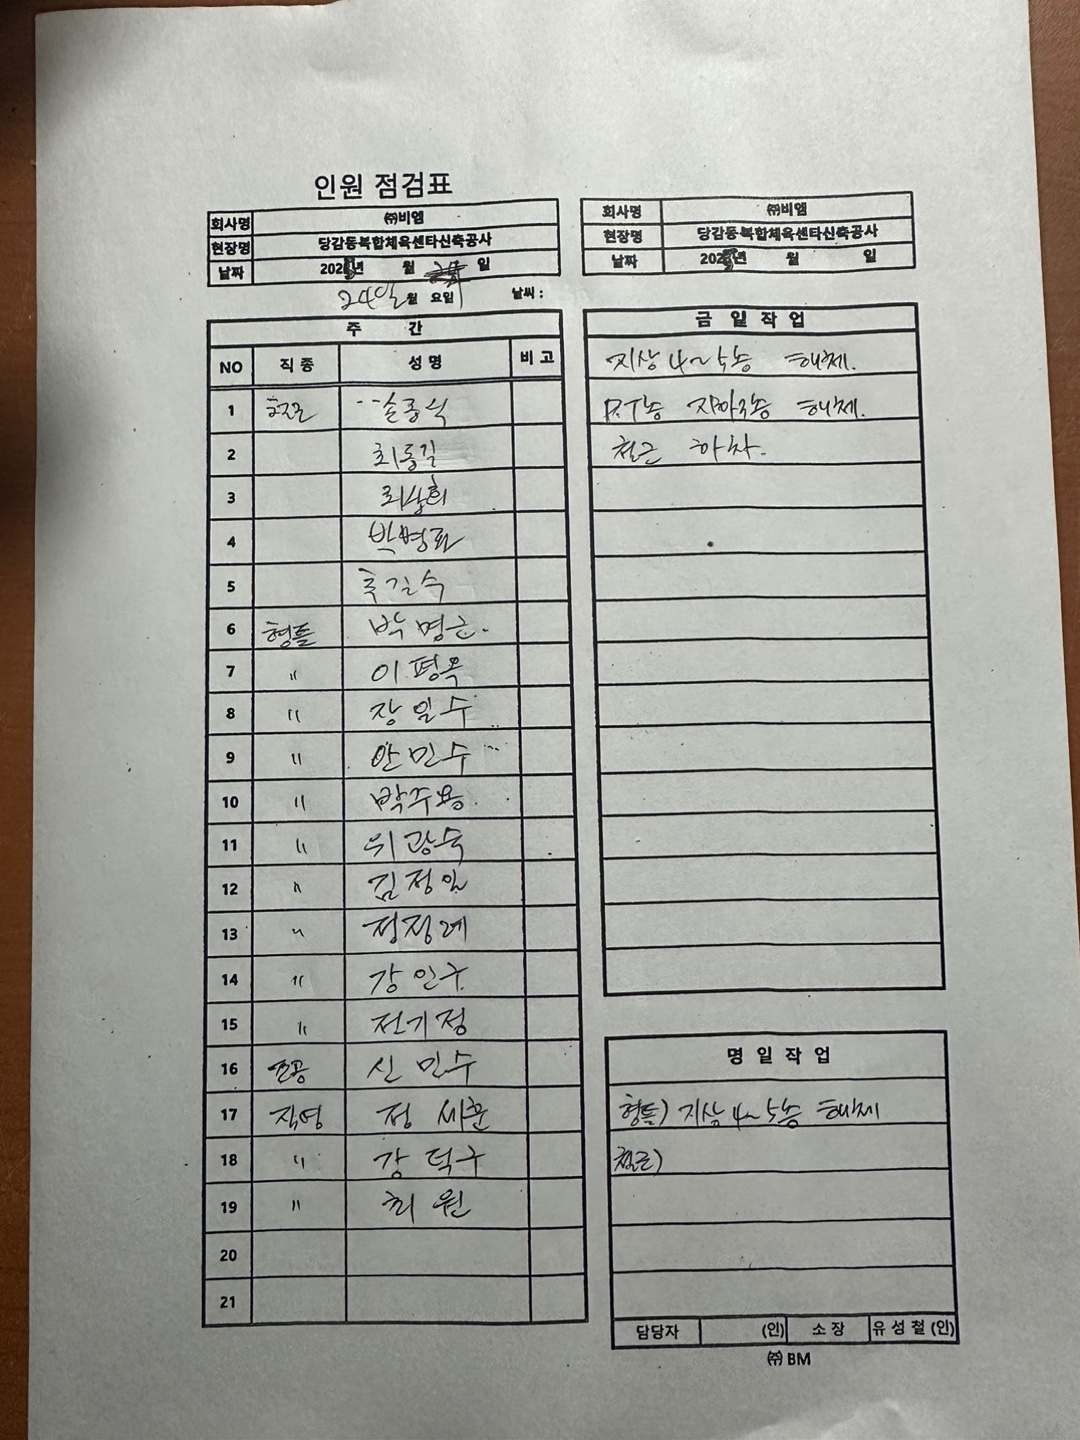 인원 점검표
회사명 ㈜비엠
현장명 당감동복합체육센타신축공사
날짜 202 년 월 일
24일 월 요일 날씨 :
주 간
NO 직종 성명 비고
1 철근 식
2 최동길
3 최상희
4 박병표
5 길수
6 형틀 박명근.
7 〃 이평옥
8 〃 장일수
9 〃 안민수
10 〃 박주용
11 〃 위광숙
12 〃 김정일
13 〃 정정례
14 〃 강인구
15 〃 전기정
16 신민수
17 직영 정세훈
18 〃 강덕구
19 〃 최원
20
21
회사명 ㈜비엠
현장명 당감동복합체육센타신축공사
날짜 202 년 월 일
금일작업
지상 4~5층 해체.
P.T층 해체.
철근 하차.
명일작업
형틀) 지상 4~5층 해체
철근)
담당자 (인) 소장 유성철 (인)
㈜ BM